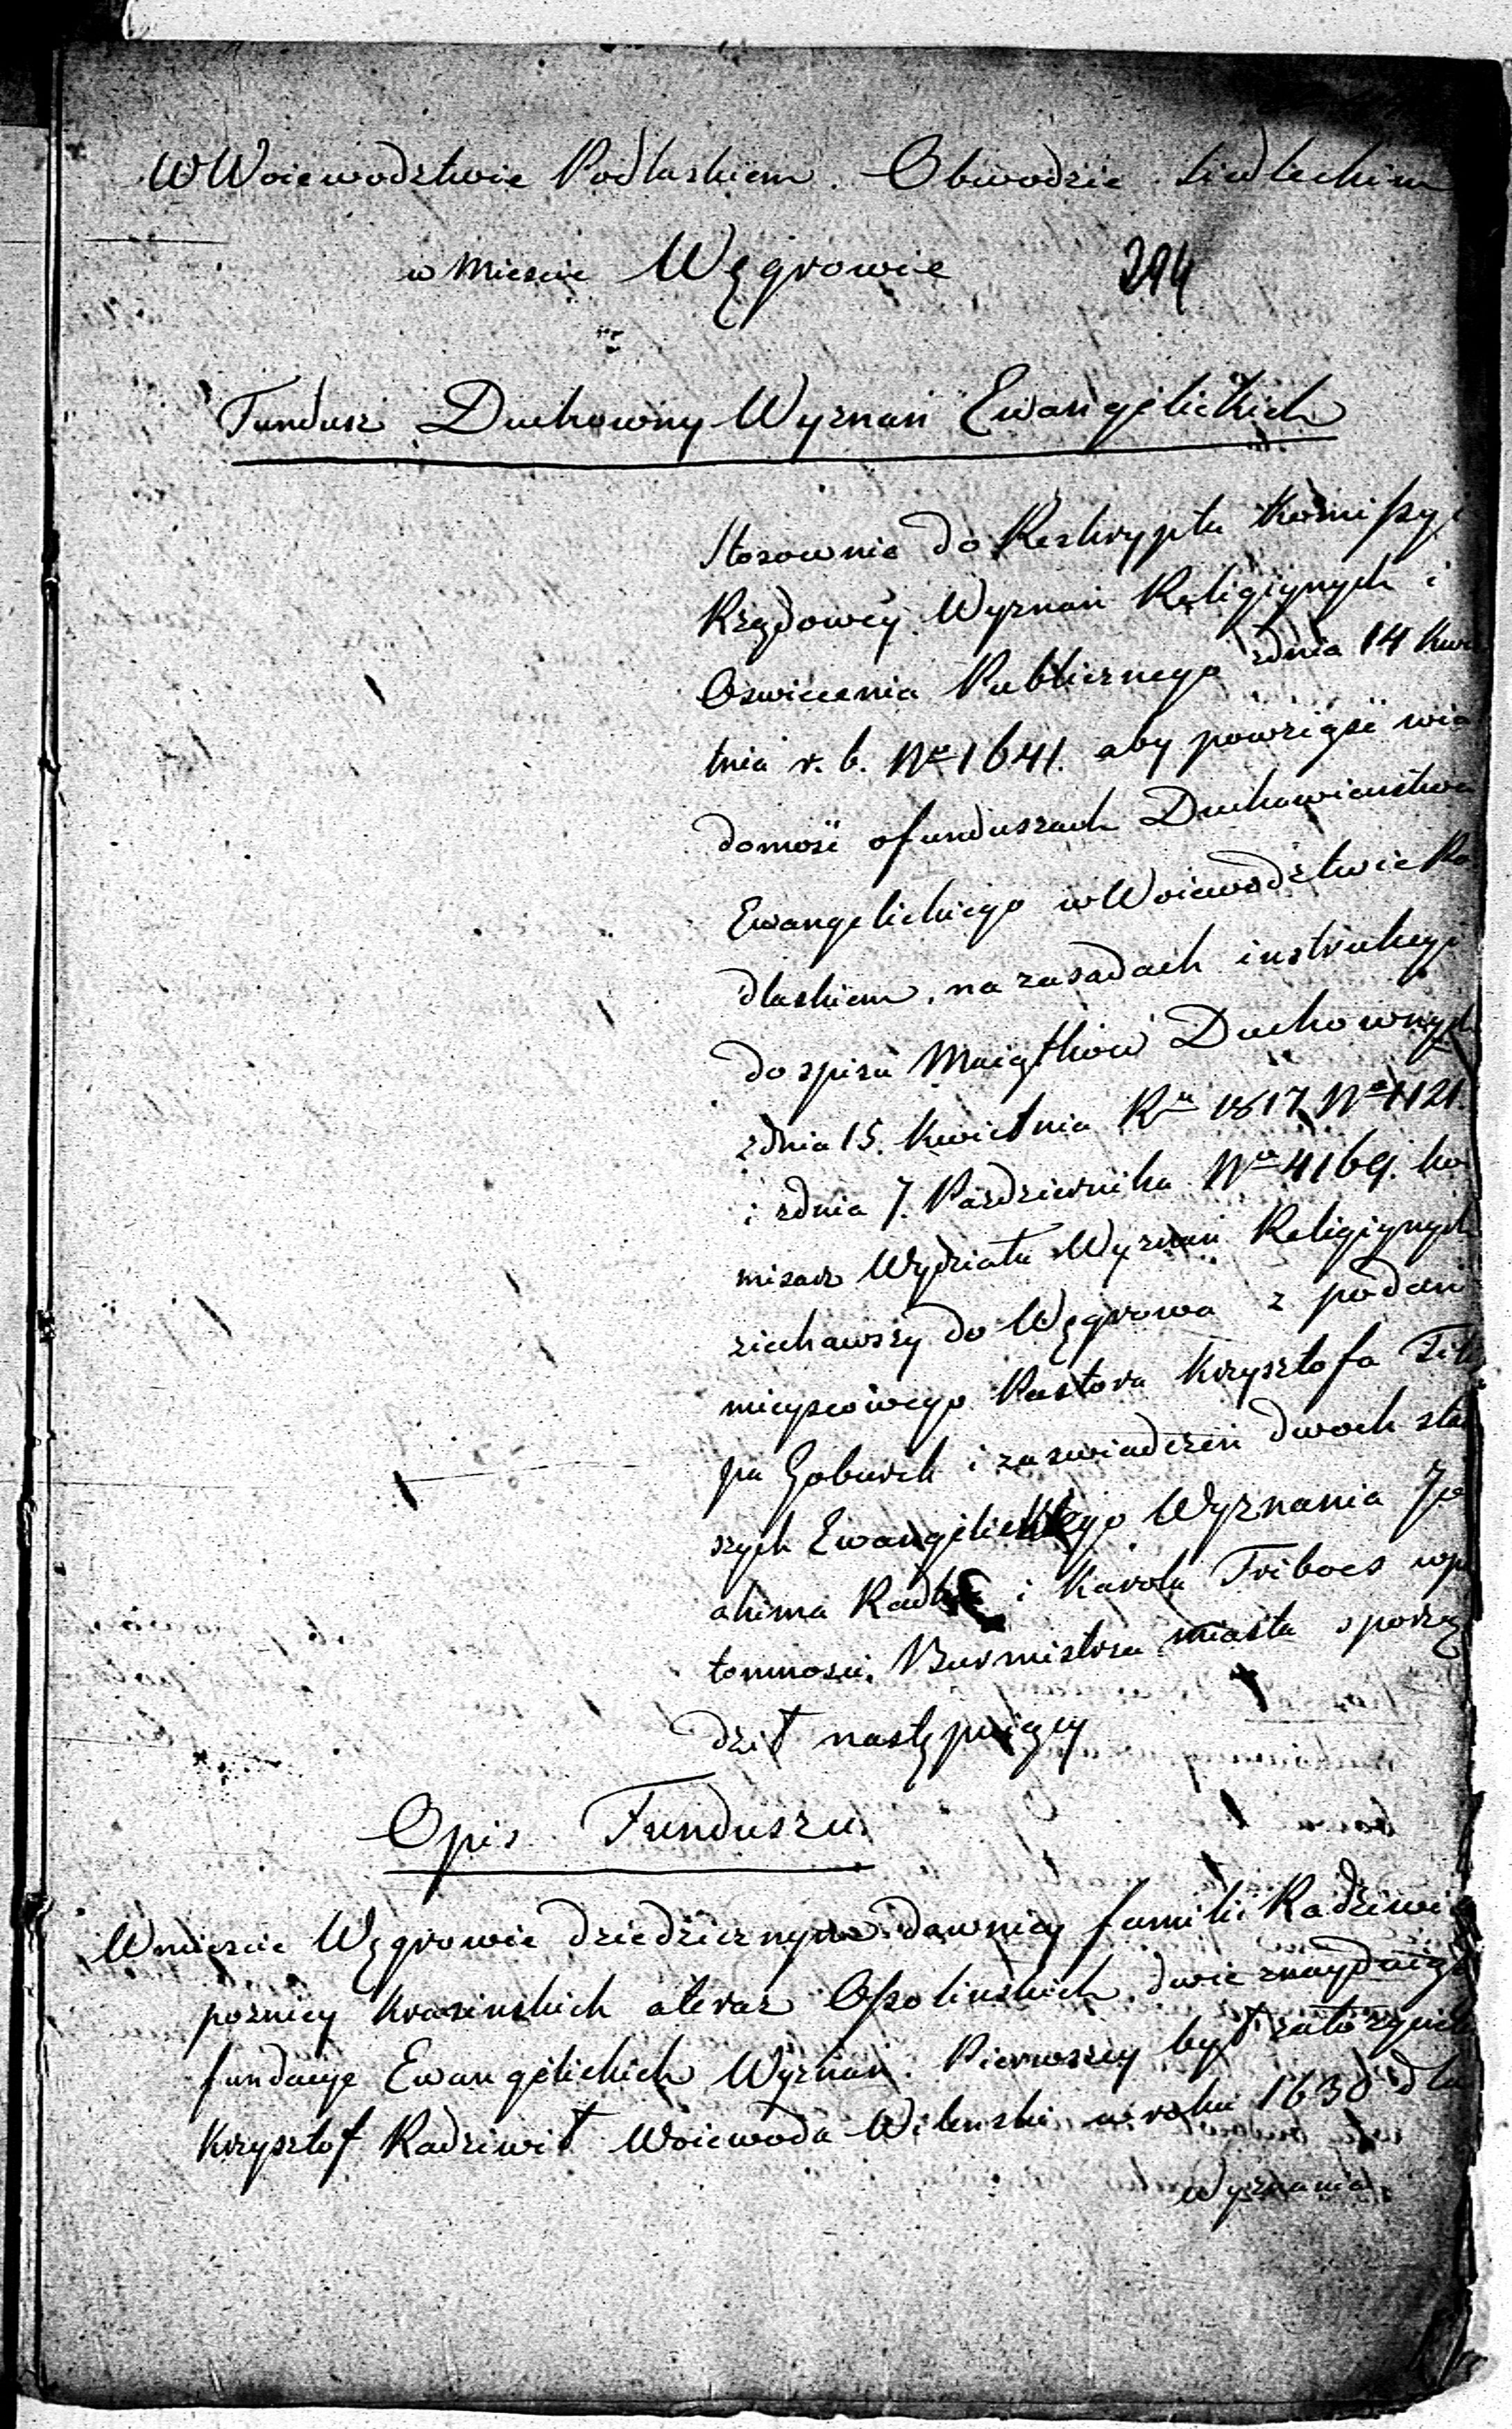 W Woiewodztwie Podlaskiem. Obwodzie Siedleckim
w Miescie Węgrowie 294
Fundusz Duchowny Wyznań Ewangelickich
Stosownie do Reskryptu Kommissyi
Rządowey Wyznań Religiynych i
Oswiecenia Publicznego zdnia 14 Kwie
tnia r. b. No 1641. aby powziąść wia
domość o funduszach Duchowieństwa
Ewangelickiego w Woiewodztwie Po
dlaskiem, na zasadach instrukcyi
do spisu Maiątków Duchownych
zdnia 15. Kwietnia Ru 1817 No 1121.
i zdnia 7. Pazdziernika No 4169. Kom
misarz Wydziału Wyznań Religiynych
ziechawszy do Węgrowa z podań
mieyscowego Pastora Krzysztofa
i zaswiadczeń dwoch star
szych Ewangelickiego Wyznania Jo
achima i Karola Triboes wprzy
tomnosci Burmistrza miasta sporzą
dził następuiący
Opis Funduszu
W miescie Węgrowie dziedzicznym dawniey familii Radziwił
pozniey Krasinskich a teraz Ossolinskich, dwie znayduią
fundacye Ewangelickich Wyznań. Pierwszey był załozyciel
Krzysztof Radziwił Woiewoda Wilenski w roku 1630 dla
Wyznania